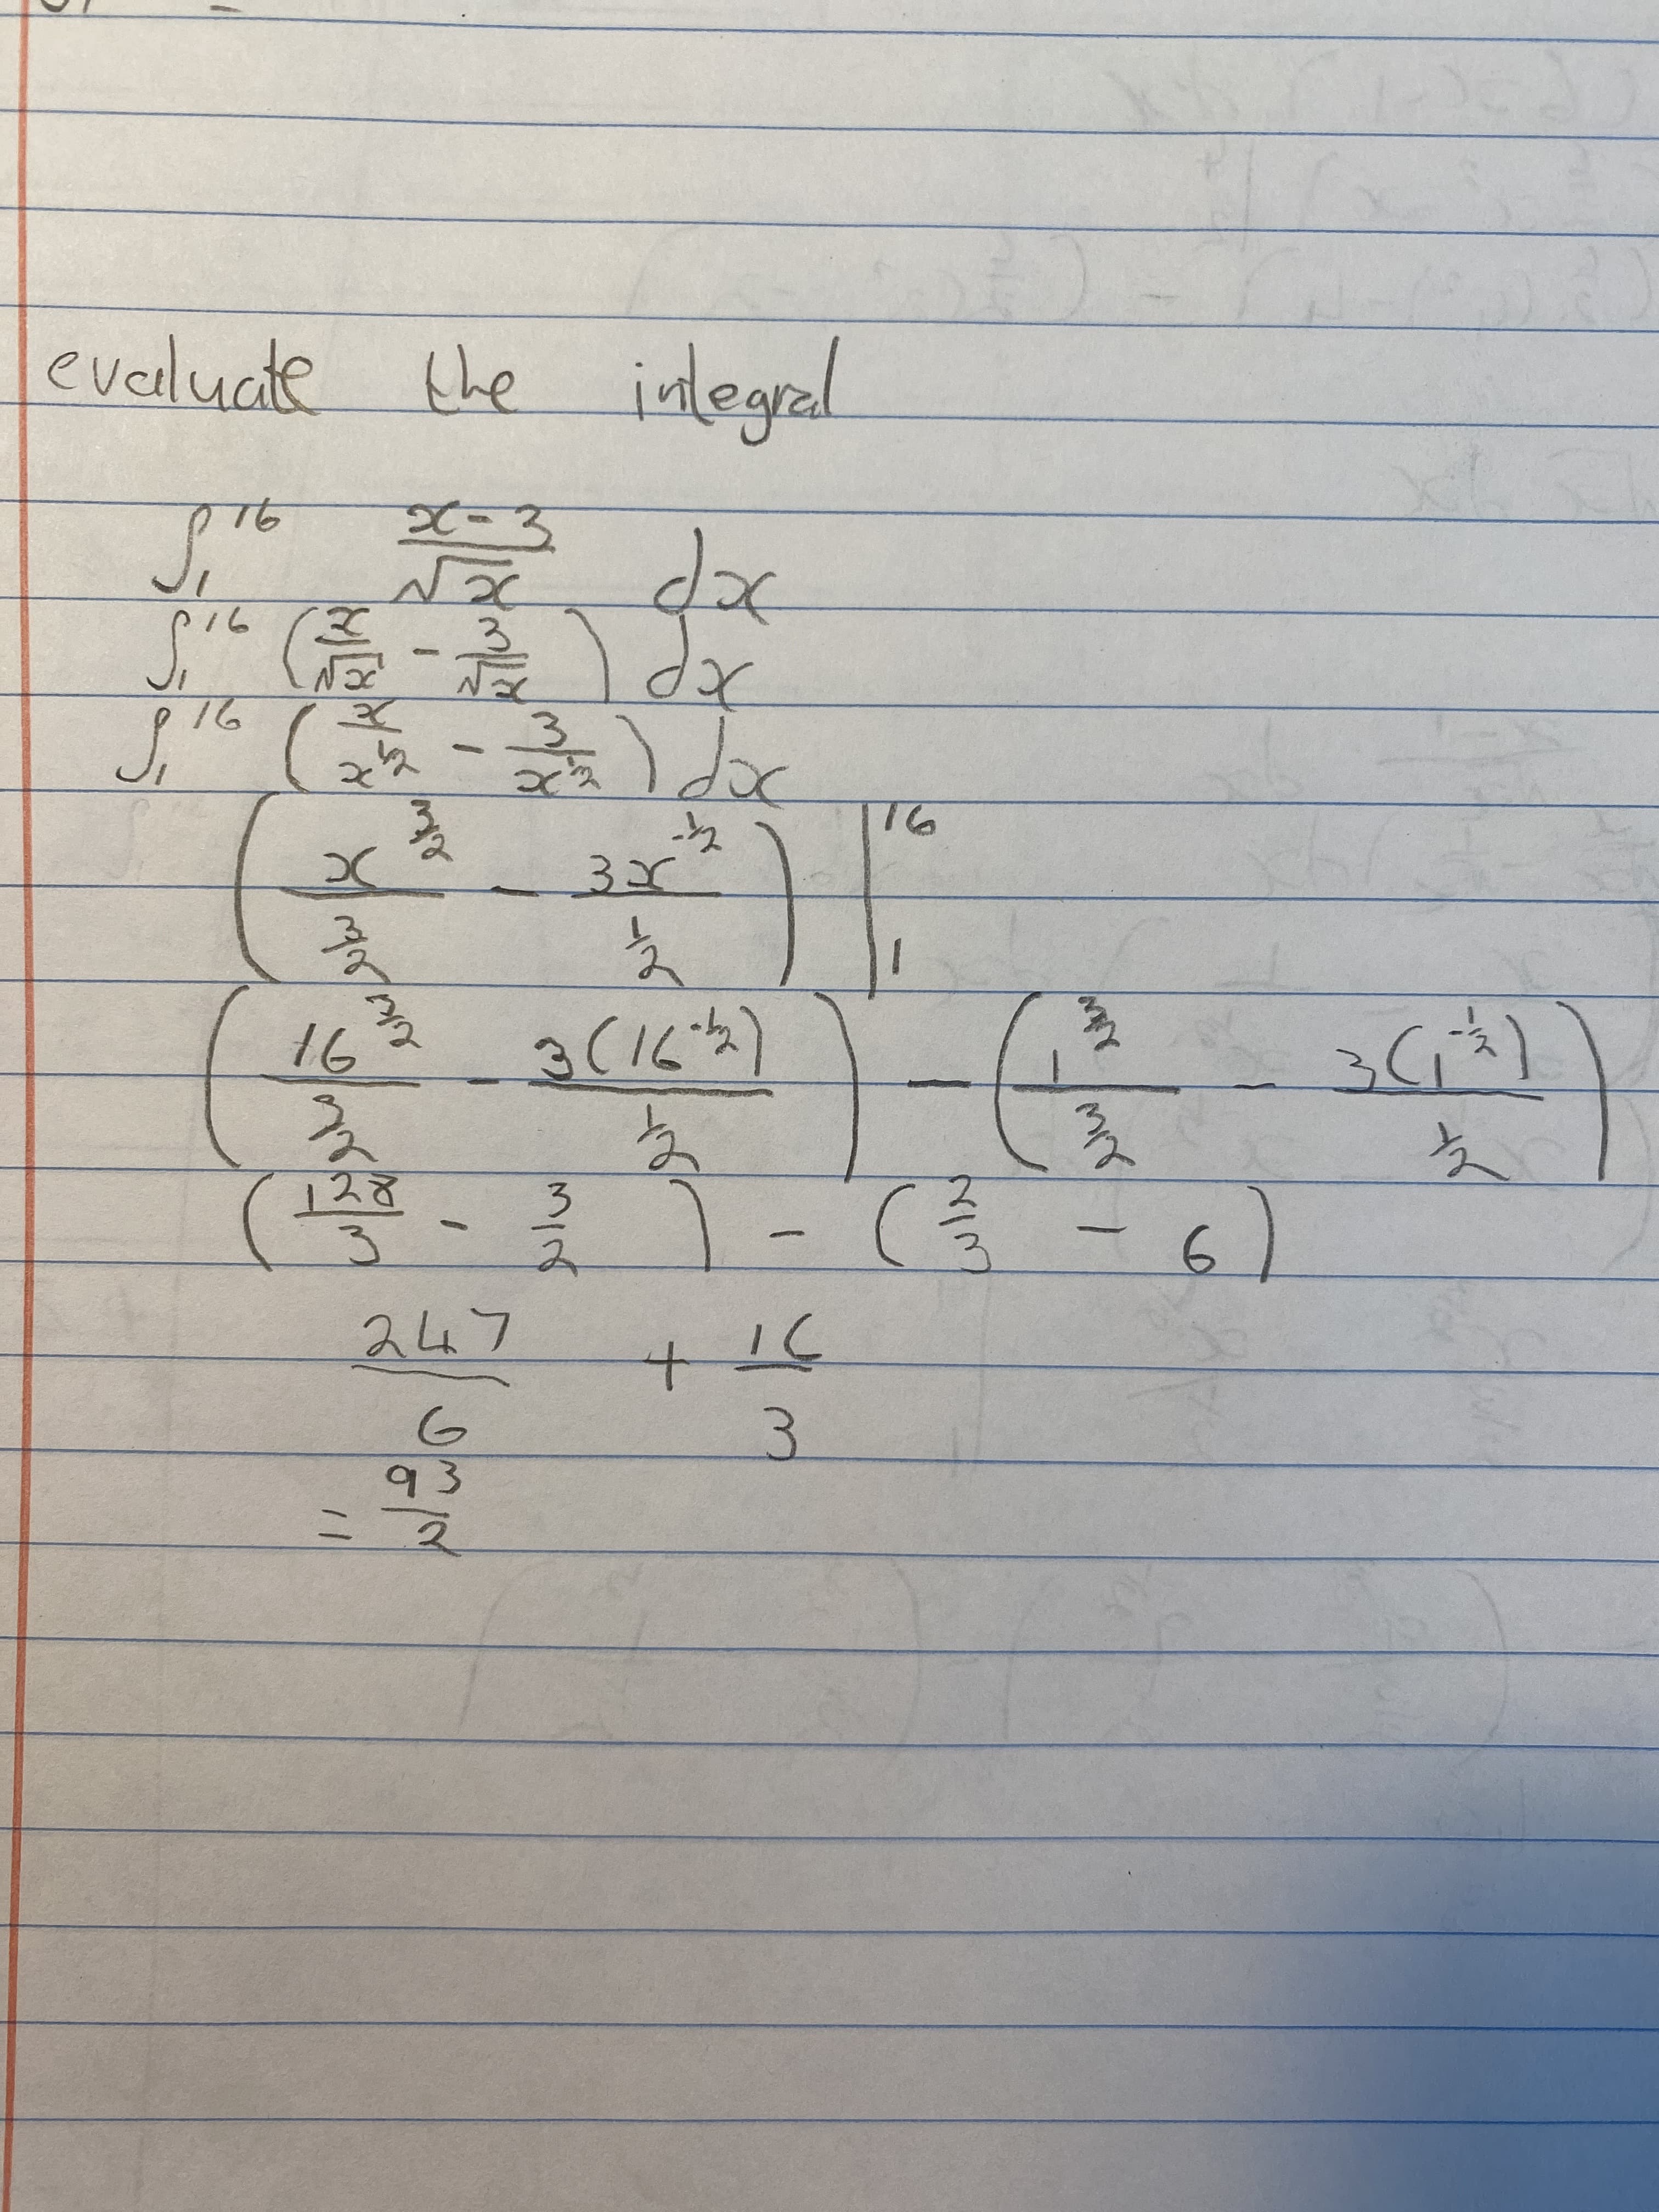 evaluate the integral
∫₁¹⁶ (x-3)/√x dx
∫₁¹⁶ (x/√x - 3/√x) dx
∫₁¹⁶ (x/x^(1/2) - 3/x^(1/2)) dx
(x^(3/2)/(3/2) - 3x^(-1/2)/(1/2)) |₁¹⁶
(16^(3/2)/(3/2) - 3(16^(-1/2))/(1/2)) - (1^(3/2)/(3/2) - 3(1^(-1/2))/(1/2))
(128/3 - 3/2) - (2/3 - 6)
247/6 + 16/3
= 93/2